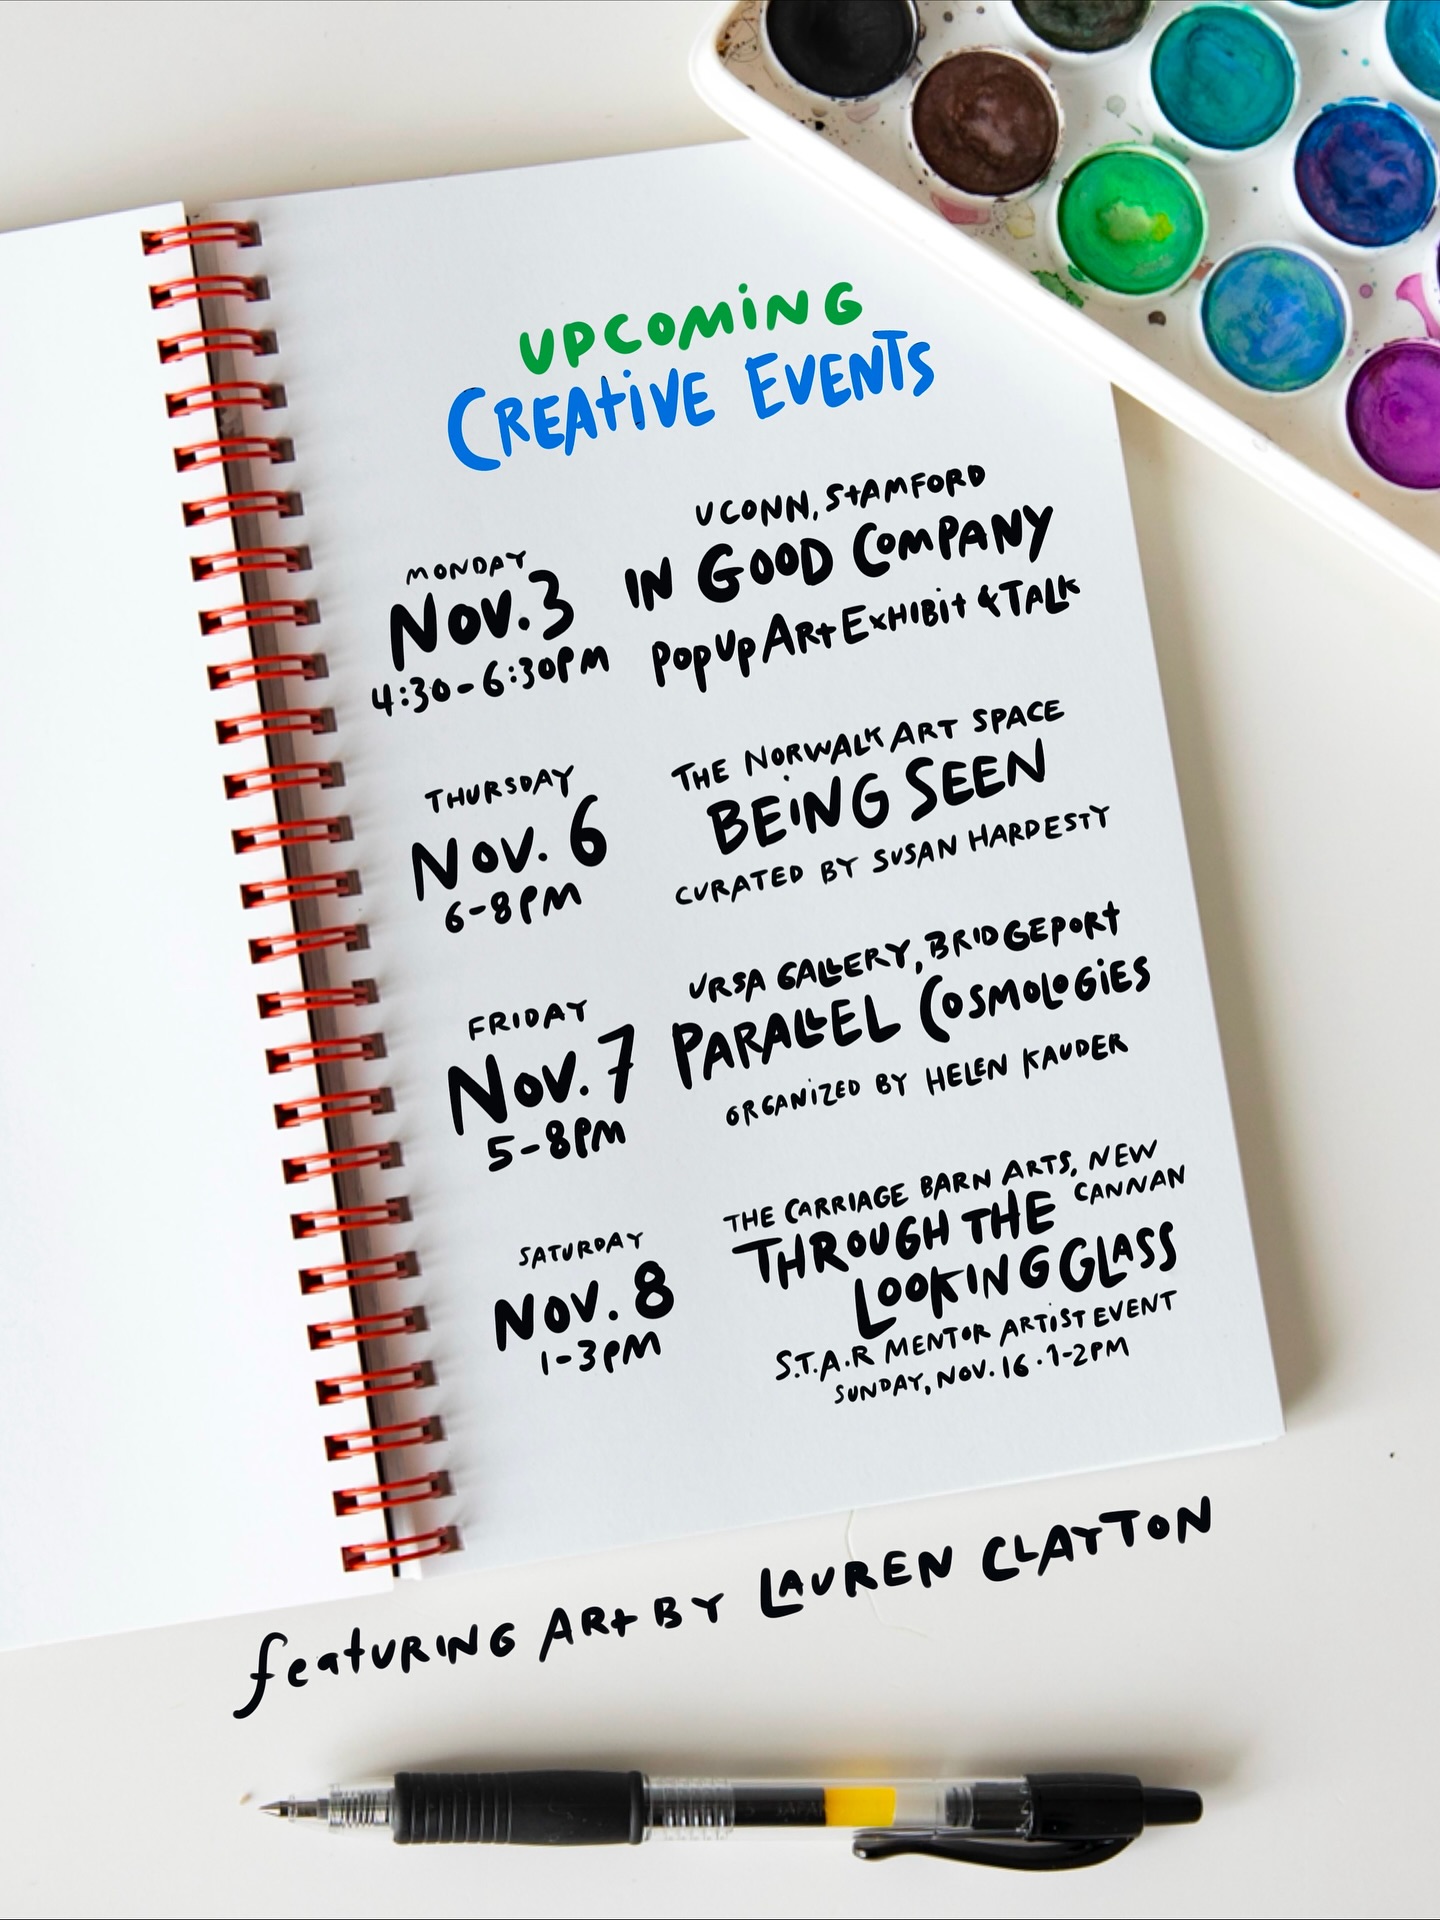 UPCOMING
CREATIVE EVENTS
MONDAY
NOV. 3
4:30-6:30PM
UCONN, STAMFORD
IN GOOD COMPANY
POPUP ART EXHIBIT & TALK
THURSDAY
NOV. 6
6-8PM
THE NORWALK ART SPACE
BEING SEEN
CURATED BY SUSAN HARDESTY
FRIDAY
NOV. 7
5-8PM
URSA GALLERY, BRIDGEPORT
PARALLEL COSMOLOGIES
ORGANIZED BY HELEN KAUDER
SATURDAY
NOV. 8
1-3PM
THE CARRIAGE BARN ARTS, NEW
CANNAN
THROUGH THE
LOOKING GLASS
S.T.A.R MENTOR ARTIST EVENT
SUNDAY, NOV. 16 · 1-2PM
featuring ART BY LAUREN CLAYTON
JAPAN